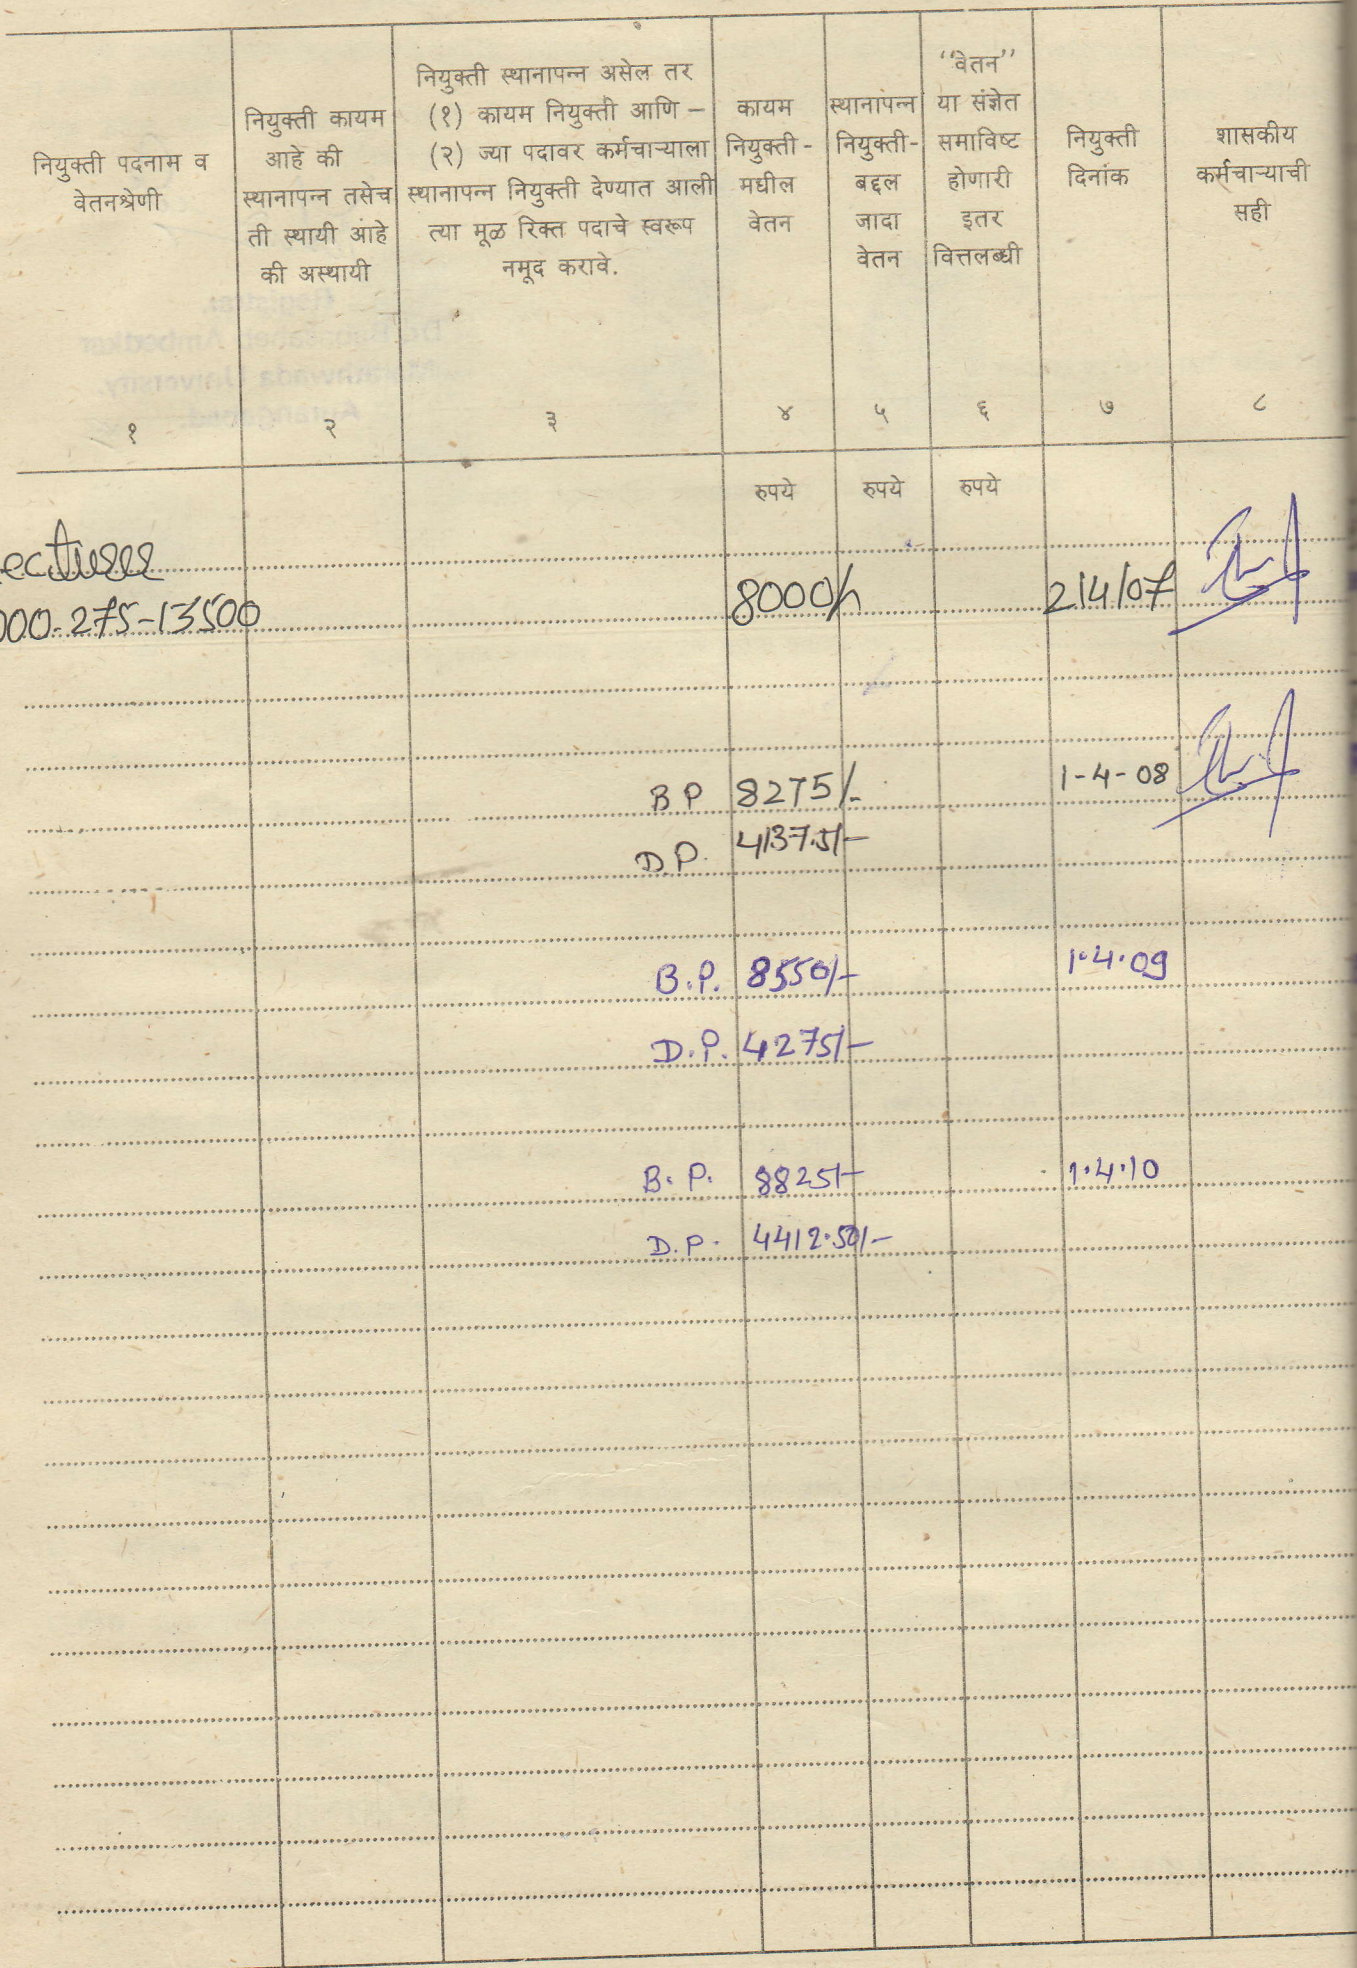 नियुक्ती पदनाम व
वेतनश्रेणी
नियुक्ती कायम
आहे की
स्थानापन्न तसेच
ती स्थायी आहे
की अस्थायी
नियुक्ती स्थानापन्न असेल तर
(१) कायम नियुक्ती आणि –
(२) ज्या पदावर कर्मचाऱ्याला
स्थानापन्न नियुक्ती देण्यात आली
त्या मूळ रिक्त पदाचे स्वरूप
नमूद करावे.
कायम
नियुक्ती -
मधील
वेतन
स्थानापन्न
नियुक्ती-
बद्दल
जादा
वेतन
"वेतन"
या संज्ञेत
समाविष्ट
होणारी
इतर
वित्तलब्धी
नियुक्ती
दिनांक
शासकीय
कर्मचाऱ्याची
सही
१ २ ३ ४ ५ ६ ७ ८
रुपये रुपये रुपये
ecturer
000-275-13500 8000/- 2/4/07
B.P 8275/- 1-4-08
D.P. 4137.5/-
B.P. 8550/- 1.4.09
D.P. 4275/-
B.P. 8825/- 1.4.10
D.P. 4412.50/-